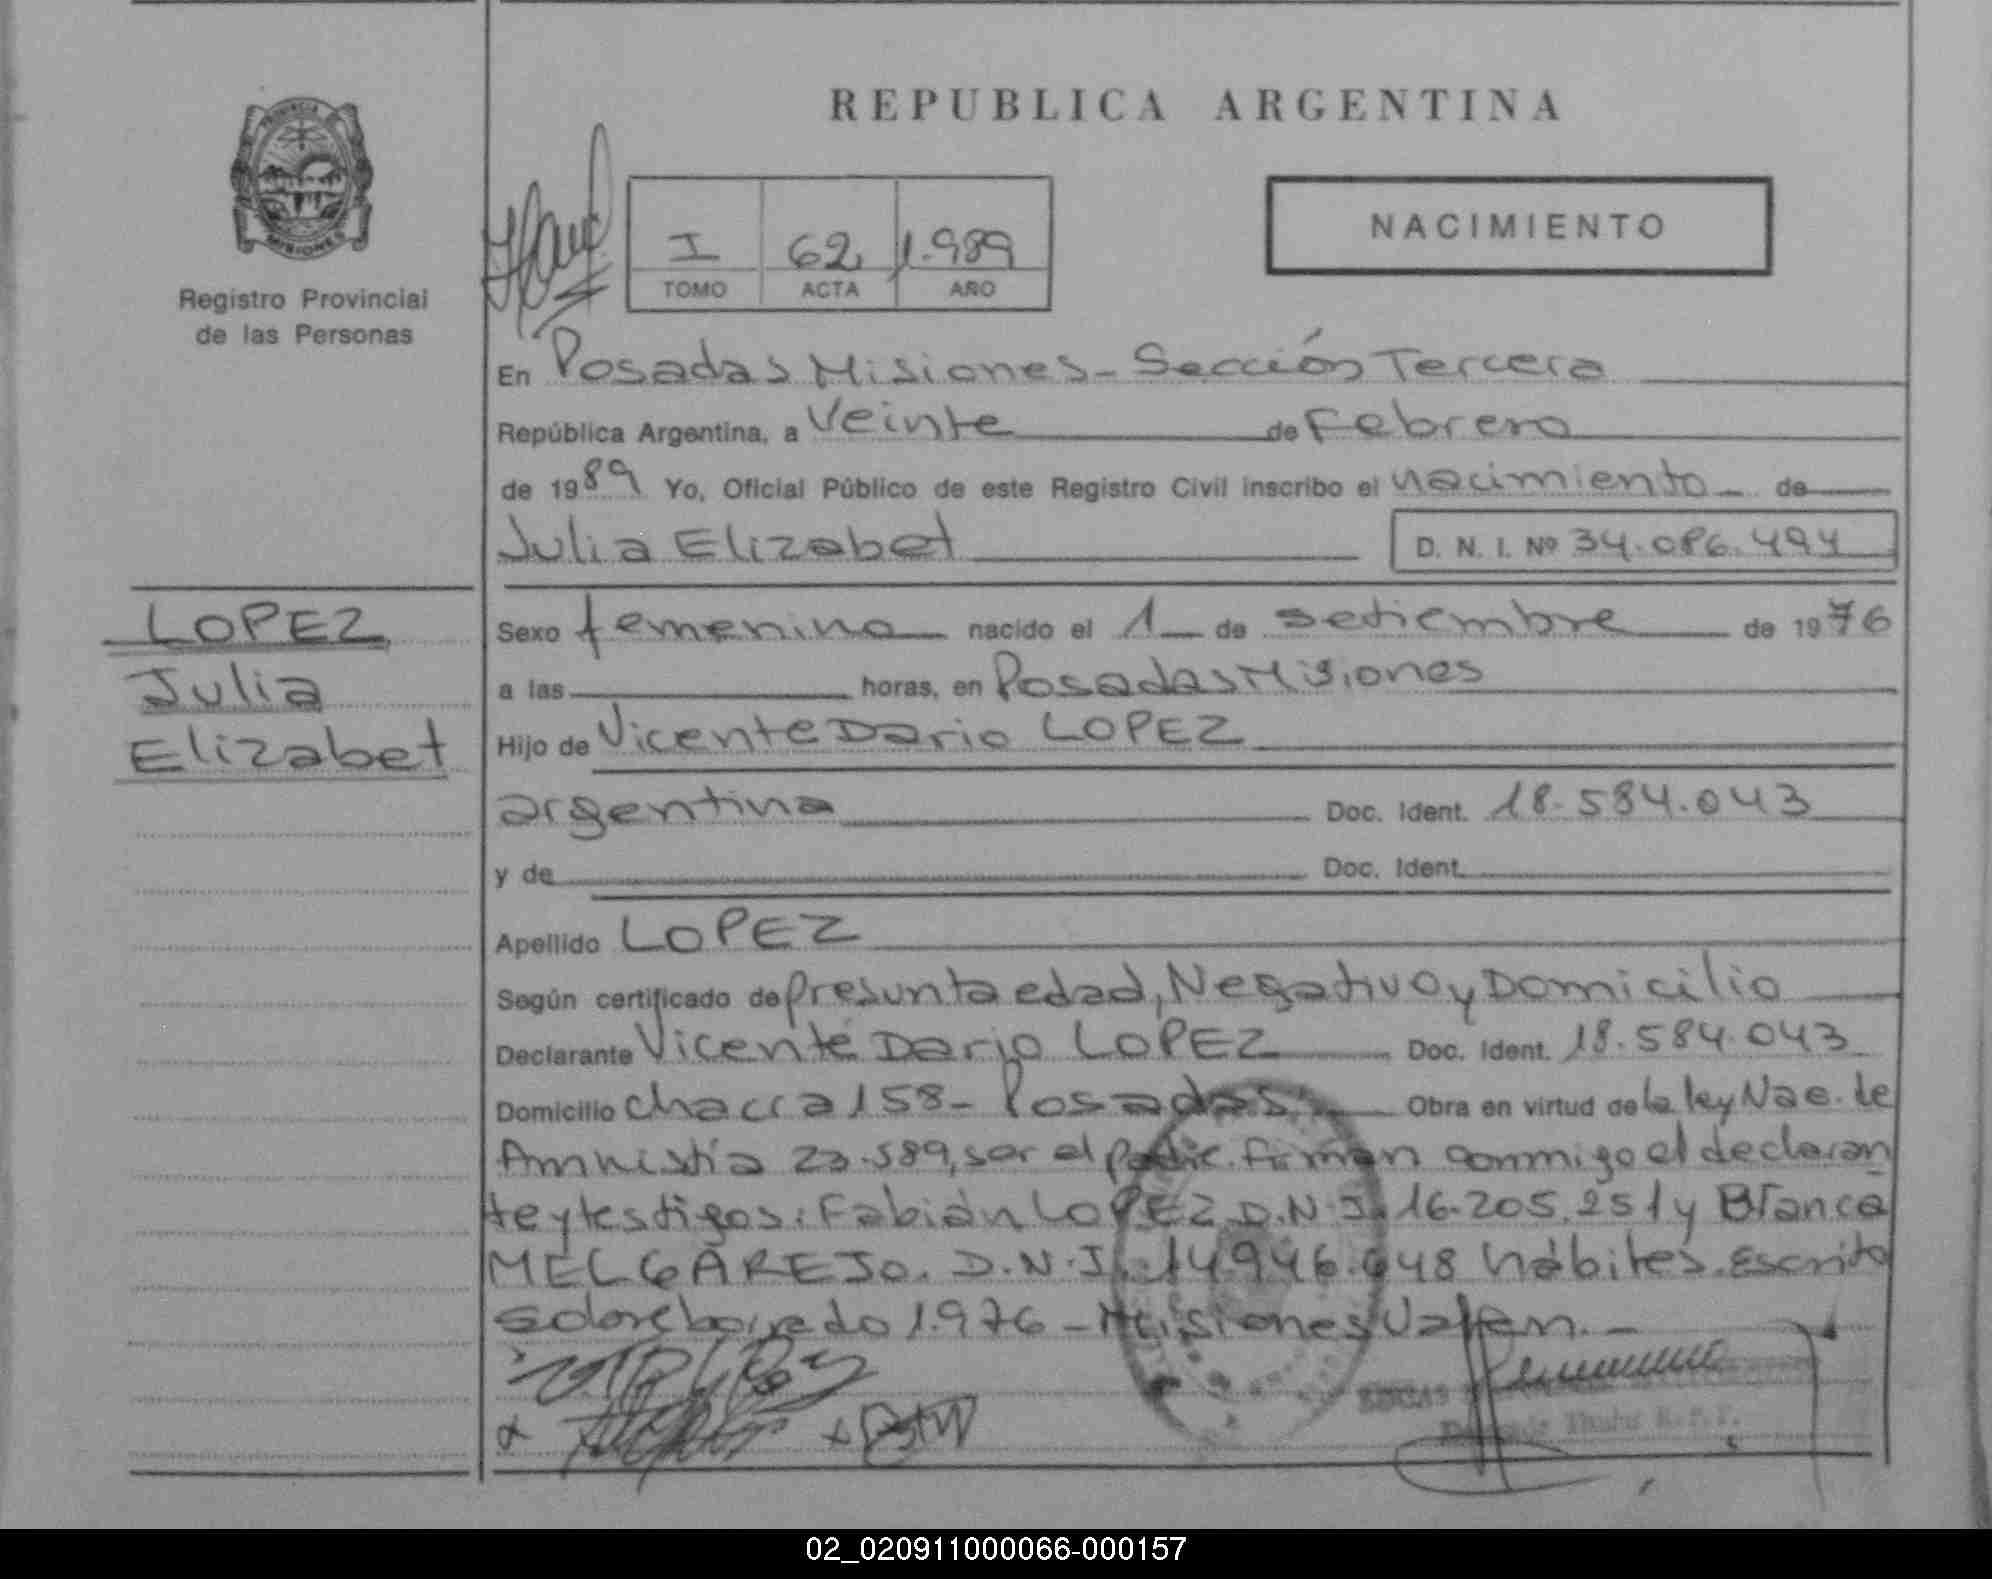 REPUBLICA ARGENTINA
PROVINCIA
MISIONES
Registro Provincial
de las Personas
I 62 1.989
TOMO ACTA AÑO
NACIMIENTO
En Posadas Misiones - Sección Tercera
República Argentina, a Veinte de Febrero
de 1989 Yo, Oficial Público de este Registro Civil inscribo el nacimiento de
Julia Elizabet D. N. I. Nº 34.086.494
LOPEZ
Julia
Elizabet
Sexo femenino nacido el 1 de setiembre de 1976
a las horas, en Posadas Misiones
Hijo de Vicente Dario LOPEZ
argentina Doc. Ident. 18.584.043
y de Doc. Ident.
Apellido LOPEZ
Según certificado de presunta edad, Negativo y Domicilio
Declarante Vicente Dario LOPEZ Doc. Ident. 18.584.043
Domicilio chacra 158 - Posadas Obra en virtud de la ley Nac. de
Amnistía 23.589, ser el padre. firman conmigo el declaran
te y testigos: Fabián LOPEZ D.N.I. 16.205.251 y Blanca
MELGAREJO. D.N.I. 14.946.648 hábiles. Escrito
sobre borrado 1.976 - Misiones Valen. -
02_020911000066-000157